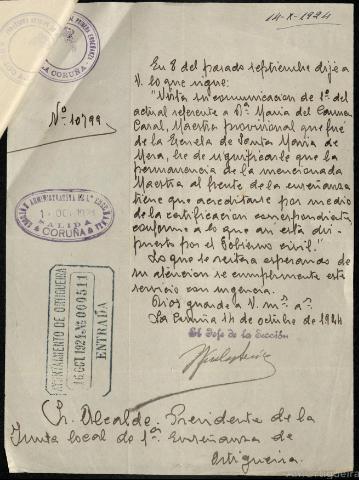 14-X-1924
LA CORUÑA
Nº 10799
En 8 del pasado septiembre dije a
V. lo que sigue:
"Vista su comunicacion de 1º del
actual referente a Dª Maria del Carmen
Casal, Maestra provisional que fué
de la Escuela de Santa Maria de
Mera, he de significarle que la
permanencia de la mencionada
Maestra al frente de la enseñanza
tiene que acreditarse por medio
de la certificacion correspondiente
conforme a lo que así está dis-
puesto por el Gobierno civil."
Lo que le reitero esperando de
su atencion se cumplimente este
servicio con urgencia.
Dios guarde a V. mˢ aˢ.
La Coruña 14 de octubre de 1924
El Jefe de la Sección
SECCION ADMINISTRATIVA DE 1ª ENSEÑANZA
OCT 1924
SALIDA
CORUÑA
AYUNTAMIENTO DE ORTIGUEIRA
16 OCT. 1924 Nº 000311
ENTRADA
Sr. Alcalde. Presidente de la
Junta local de 1ª Enseñanza de
Ortigueira.